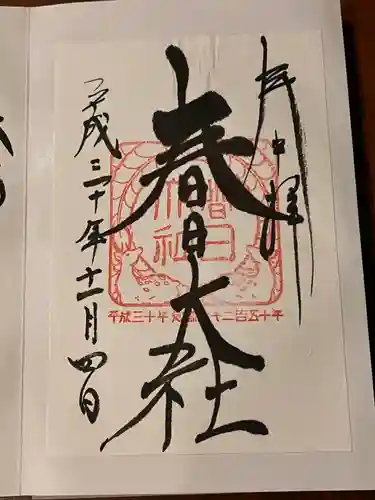 奉拝
春日大社
平成三十年十一月四日
春日大社
平成三十年
二百五十年